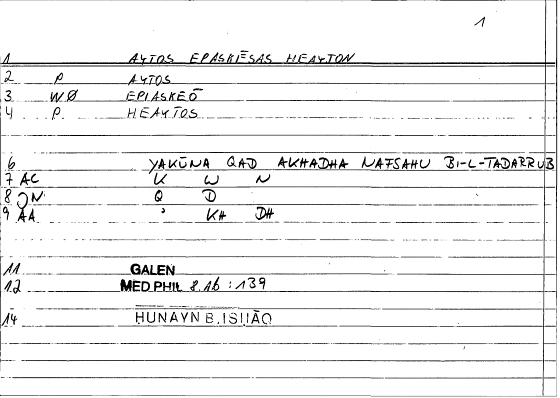 1
1 AYTOS EPASKĒSAS HEAYTON
2 P AYTOS
3 WØ EPIASKEŌ
4 P. HEAYTOS
6 YAKŪNA QAD AKHADHA NAFSAHU BI-L-TADARRUB
7 AC K W N
8 QN Q D
9 AA ' KH DH
11 GALEN
12 MED.PHIL 8.16 : 139
14 HUNAYN B.ISḤĀQ